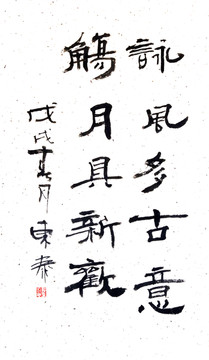 詠風多古意
觴月具新歡
戊戌十一月東泰